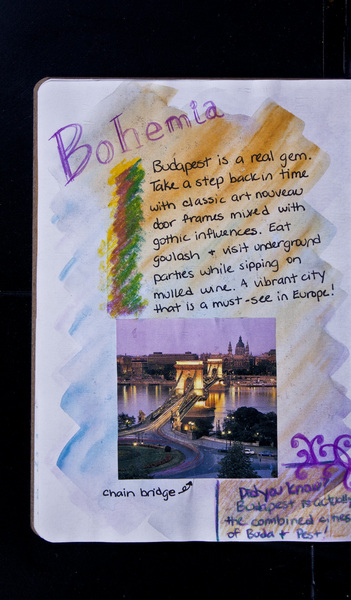 Bohemia
Budapest is a real gem.
Take a step back in time
with classic art nouveau
door frames mixed with
gothic influences. Eat
goulash + visit underground
parties while sipping on
mulled wine. A vibrant city
that is a must-see in Europe!
chain bridge
Did you know?
Budapest is actually
the combined cities
of Buda + Pest!